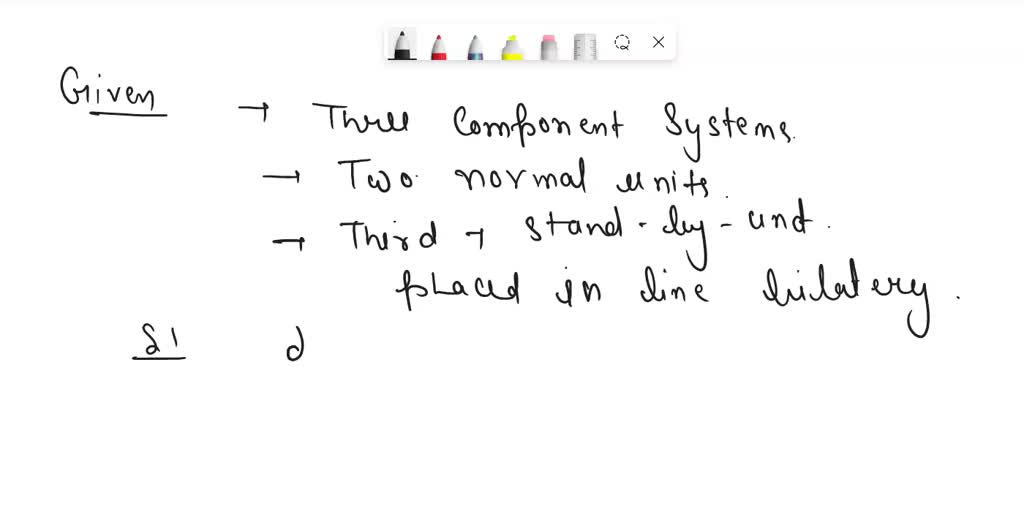 Given → Three Component Systems.
→ Two normal units.
→ Third → stand-by-unit.
placed in line
S1 d